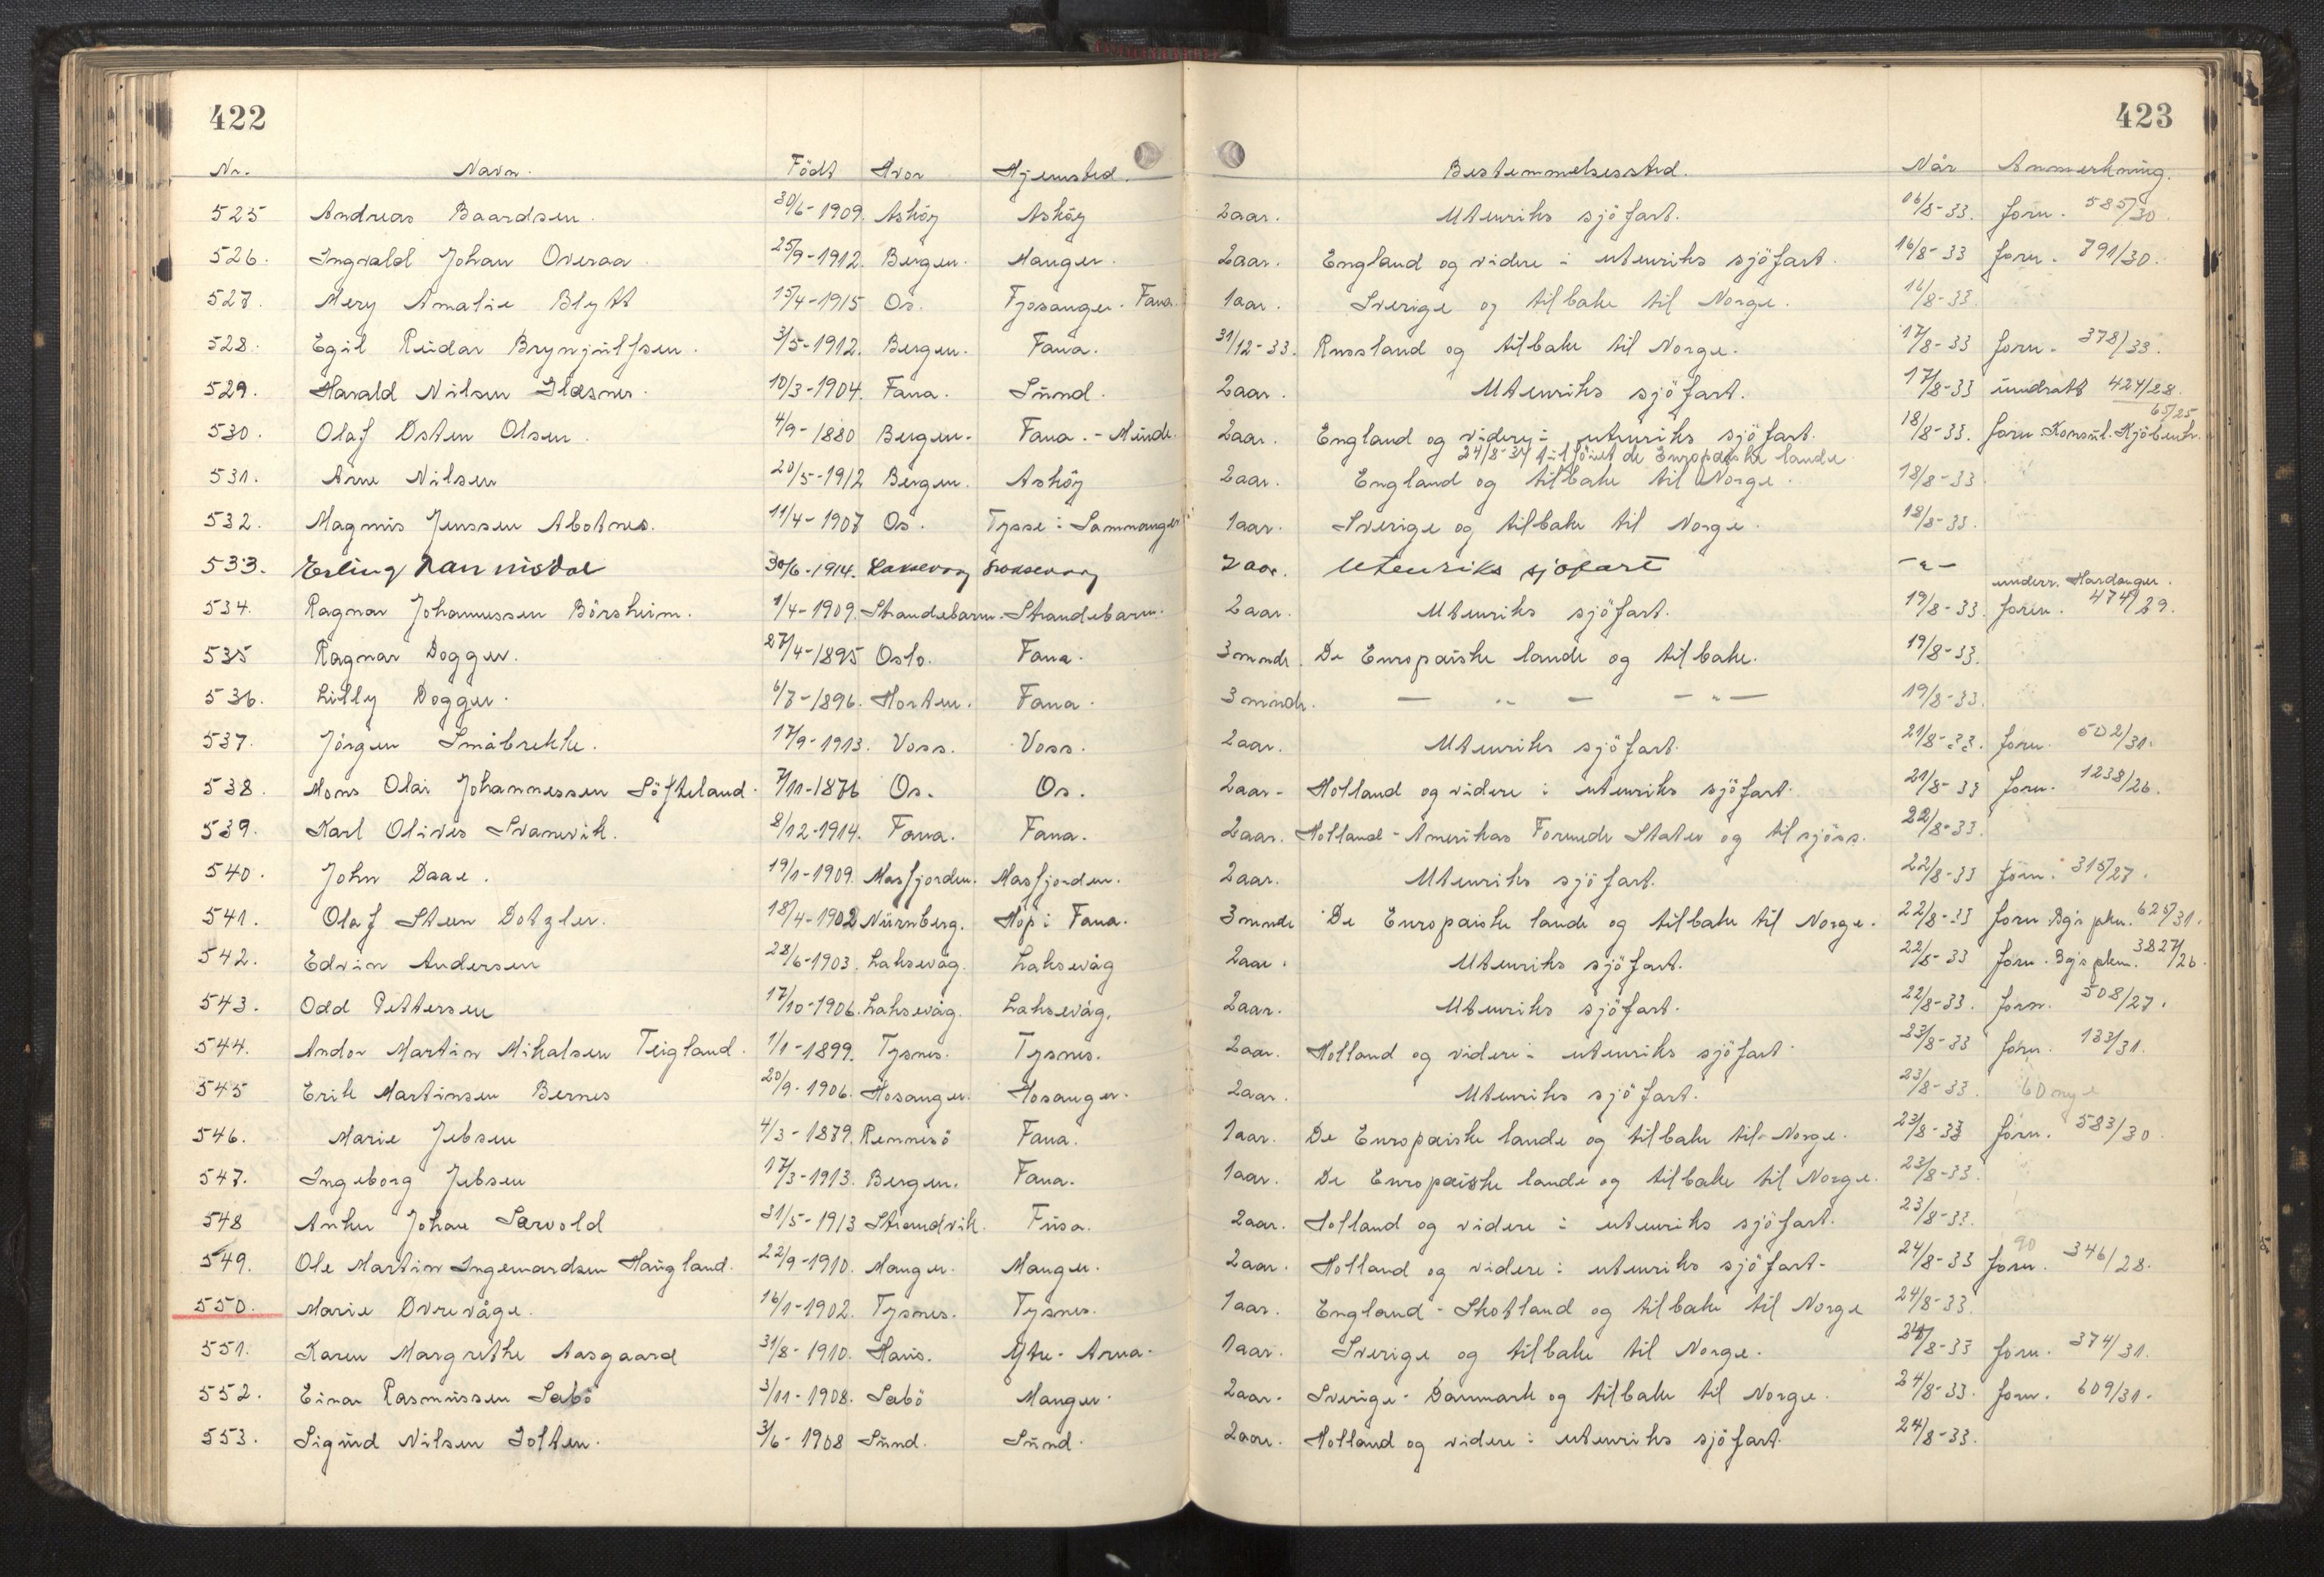 422
423
Nr. Navn. Födt Hvor Hjemsted. Bestemmelsessted. Når Anmerkning.
525 Andreas Baardsen. 30/6-1909. Asköy Asköy 2 aar. Utenriks sjöfart. 16/8-33. forn. 585/30.
526. Ingvald Johan Overaa. 25/9-1912. Bergen. Manger. 2 aar. England og videre i utenriks sjöfart. 16/8-33 forn. 791/30.
527. Mery Amalie Blytt 15/4-1915 Os. Fjösanger. Fana. 1 aar. Sverige og tilbake til Norge. 16/8-33.
528. Egil Reidar Brynjulfsen. 3/5-1912. Bergen. Fana. 31/12-33. Russland og tilbake til Norge. 17/8-33 forn. 378/33.
529. Harald Nilsen Glæsnes. 10/3-1904. Fana. Sund. 2 aar. Utenriks sjöfart. 17/8-33 inndratt 424/28.
65/25
530. Olaf Osten Olsen. 4/9-1880 Bergen. Fana.-Minde. 2 aar. England og videre i utenriks sjöfart. 18/8-33. forn. Konsul. Kjöbenh.
24/8-34 tilföiet de Europæiske lande
531. Arne Nilsen 20/5-1912 Bergen. Asköy 2 aar. England og tilbake til Norge. 18/8-33
532. Magnus Jenssen Abotnes. 11/4-1907 Os. Tysse i Samnanger 1 aar. Sverige og tilbake til Norge. 18/8-33.
533. Erling Nannisdal 30/6-1914. Laksevaag Laksevaag 2 aar. Utenriks sjöfart -"-
underr. Hardanger.
534. Ragnar Johannessen Börsheim. 1/4-1909. Strandebarm. Strandebarm. 2 aar. Utenriks sjöfart. 19/8-33. foren. 474/29.
535 Ragnar Dogger. 27/4-1895 Oslo. Fana. 3 mnde. De Europæiske lande og tilbake. 19/8-33.
536. Lilly Dogger. 6/7-1896. Horten. Fana. 3 mnde. — " — — " — 19/8-33.
537. Jörgen Småbrekke. 17/9-1913. Voss. Voss. 2 aar. Utenriks sjöfart. 21/8-33. forn. 502/31.
538. Mons Olai Johannessen Söfteland. 7/11-1876 Os. Os. 2 aar. Holland og videre i utenriks sjöfart. 21/8-33 forn. 1238/26.
539. Karl Olivis Svanevik. 8/12-1914. Fana. Fana. 2 aar. Holland - Amerikas Forenede Stater og til sjöss. 22/8-33.
540. John Daae. 19/1-1909. Masfjorden. Masfjorden. 2 aar. Utenriks sjöfart. 22/8-33 forn. 315/27.
541. Olaf Steen Dotzler. 18/4-1902 Nürnberg. Hop i Fana. 3 mnde De Europæiske lande og tilbake til Norge. 22/8-33 forn Bgs pkm. 625/31.
542. Edvin Andersen 28/6-1903. Laksevåg. Laksevåg 2 aar. Utenriks sjöfart. 22/8-33 forn. Bgs pkm. 3827/26.
543. Odd Pettersen 17/10-1906. Laksevåg. Laksevåg. 2 aar. Utenriks sjöfart. 22/8-33. forn. 508/27.
544. Andor Martin Mikalsen Teigland. 1/1-1899. Tysnes. Tysnes. 2 aar. Holland og videre i utenriks sjöfart. 23/8-33 forn. 133/31.
545 Erik Martinsen Bernes 20/9-1906. Hosanger. Hosanger. 2 aar. Utenriks sjöfart. 23/8-33. 60 nye
546. Marie Jebsen 4/3-1879. Rennesö Fana. 1 aar. De Europæiske lande og tilbake til Norge. 23/8-33 forn. 583/30.
547. Ingeborg Jebsen 17/3-1913. Bergen. Fana. 1 aar. De Europæiske lande og tilbake til Norge. 23/8-33.
548 Anker Johan Sævold 31/5-1913 Strandvik. Fusa. 2 aar. Holland og videre i utenriks sjöfart. 23/8-33.
90
549. Ole Martin Ingemardsen Haugland. 22/9-1910. Manger. Manger. 2 aar. Holland og videre i utenriks sjöfart. 24/8-33 forn. 346/28.
550. Marie Övrevåge. 16/1-1902. Tysnes. Tysnes. 1 aar. England - Skotland og tilbake til Norge 24/8-33.
551. Karen Margrethe Aasgaard 31/8-1910. Haus. Ytre-Arna. 1 aar. Sverige og tilbake til Norge. 24/8-33 forn. 374/31.
552. Einar Rasmussen Sæbö 3/11-1908. Sæbö Manger. 2 aar. Sverige - Danmark og tilbake til Norge. 24/8-33. forn. 609/31.
553. Sigurd Nilsen Golten. 3/6-1908 Sund. Sund. 2 aar. Holland og videre i utenriks sjöfart. 24/8-33.